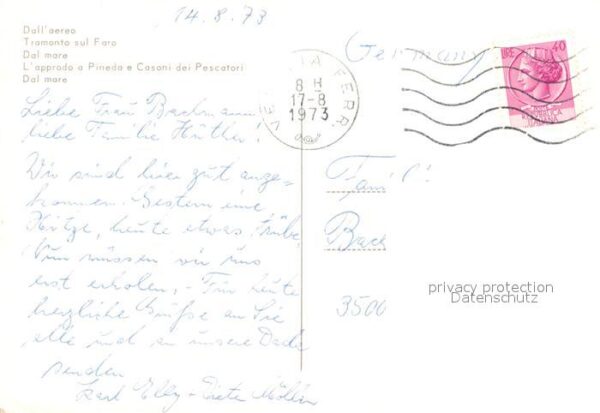 14.8.73
Dall'aereo
Tramonto sul Faro
Dal mare
L'approdo a Pineda e Casoni dei Pescatori
Dal mare
Liebe Frau Bachmann
liebe Familie
Wir sind hier gut ange-
kommen. Gestern eine
Hitze, heute etwas trübe.
Nun müssen wir uns
erst erholen, - Für heute
herzliche Grüße an Sie
alle und an unsere
senden
Elly
Germany
FERR.
8 H
17-8
1973
LIRE 40
Famil
Bach
3500
privacy protection
Datenschutz